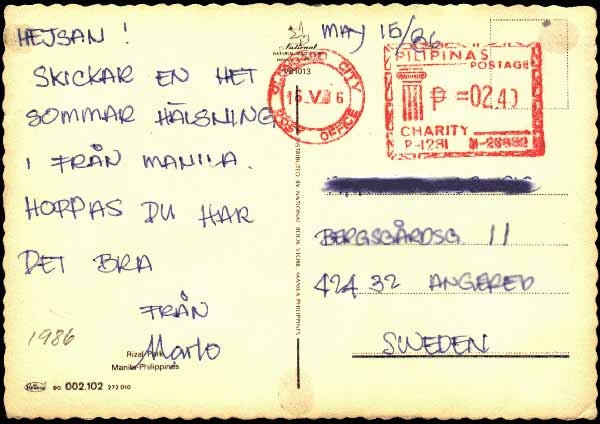 HEJSAN!
SKICKAR EN HET
SOMMAR HÄLSNING
I FRÅN MANILA.
HOPPAS DU HAR
DET BRA
FRÅN
Mario
1986
Rizal Park
Manila-Philippines
002.102 272 010
National
DISTRIBUTED BY NATIONAL BOOK STORE MANILA PHILIPPINES
MAY 15/86
CITY
POST OFFICE
PILIPINAS
POSTAGE
₱ =02.40
CHARITY
P-1231
BERGSGÅRDSG 11
424 32 ANGERED
SWEDEN